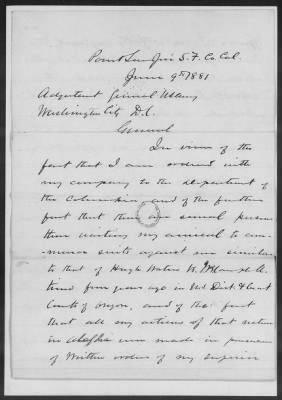 Point San José S.F. Co. Cal.
June 9th 1881
Adjutant General U.S. Army
Washington City D.C.
General
In view of the
fact that I am ordered with
my company to the Department of
the Columbia and of the further
fact that there are several persons
there waiting my arrival to com-
mence suits against me similar
to that of Hugh Waters vs. at
time four years ago in U.S. Dist & Court
Court of Oregon, and of the fact
that all my actions of that nature
in Alaska were made in pursuance
of Written orders of my superior